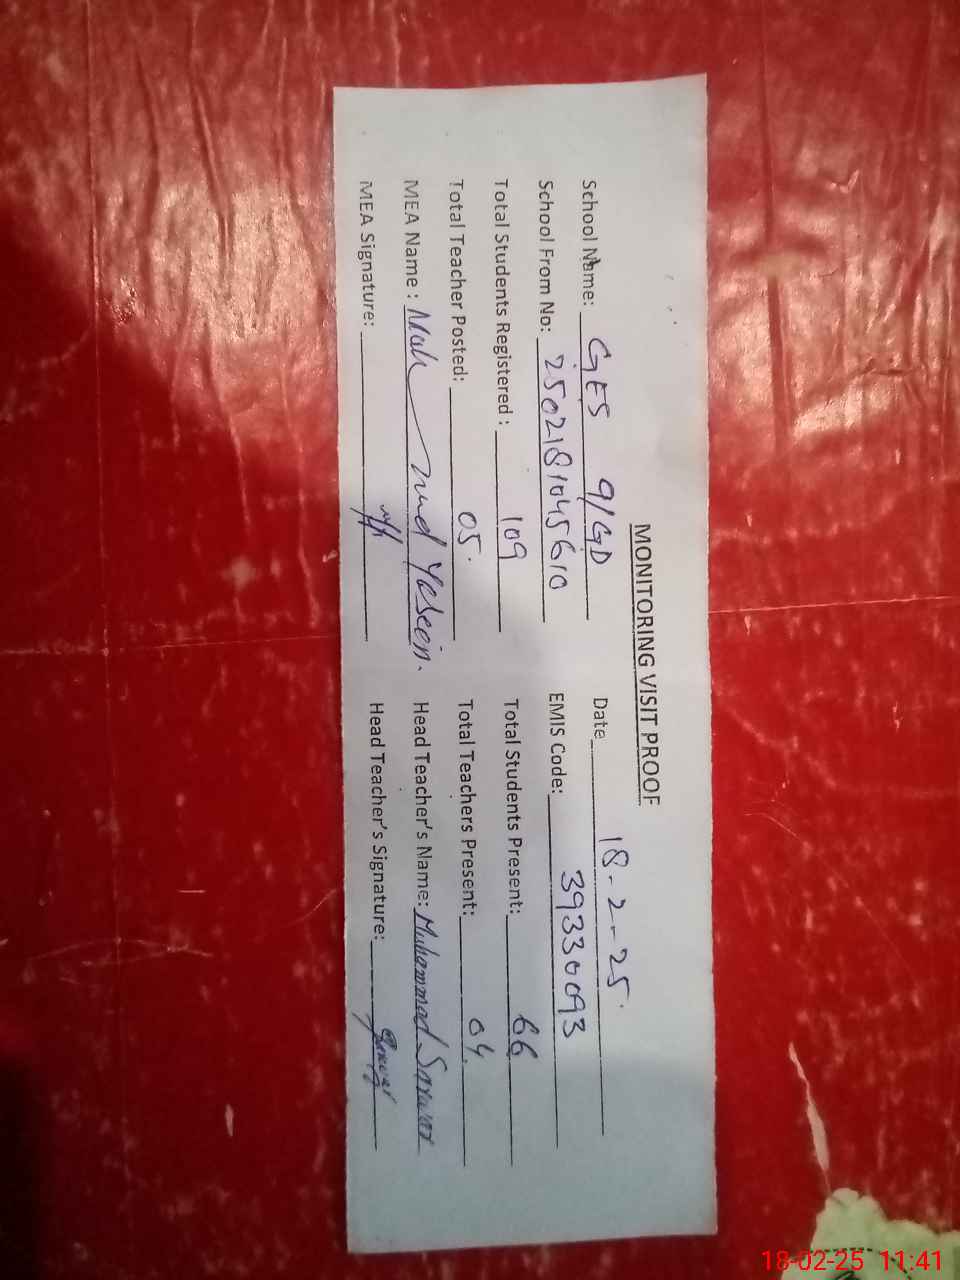 MONITORING VISIT PROOF
School Name: GES 9/GD Date 18-2-25
School From No: 2502181045610 EMIS Code: 39330093
Total Students Registered : 109 Total Students Present: 66
Total Teacher Posted: 05 Total Teachers Present: 04
MEA Name : Mahmud Yaseen. Head Teacher's Name: Muhammad Sarwar
MEA Signature: Head Teacher's Signature: Sarwar
18-02-25 11:41